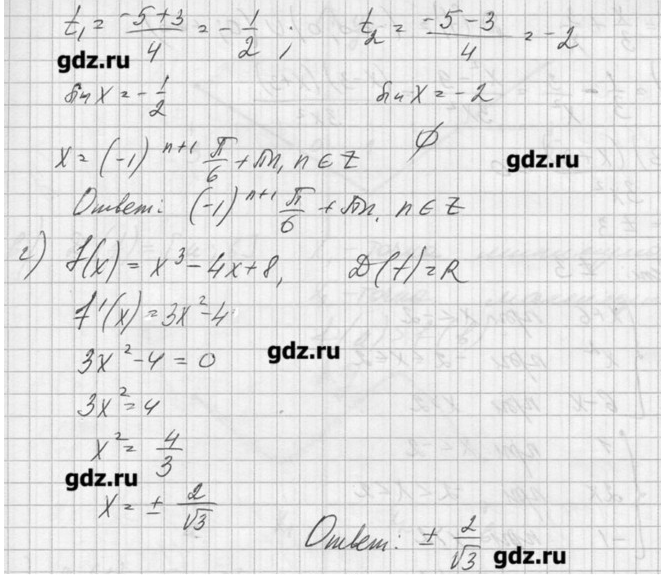 t₁ = (-5+3)/4 = -1/2 ; t₂ = (-5-3)/4 = -2
gdz.ru
sin x = -1/2 sin x = -2
x = (-1)^(n+1) π/6 + πn, n ∈ Z ∅ gdz.ru
Ответ: (-1)^(n+1) π/6 + πn, n ∈ Z
г) f(x) = x³ - 4x + 8, D(f) = R
f'(x) = 3x² - 4
3x² - 4 = 0 gdz.ru
3x² = 4
x² = 4/3
gdz.ru
x = ± 2/√3
Ответ: ± 2/√3 gdz.ru